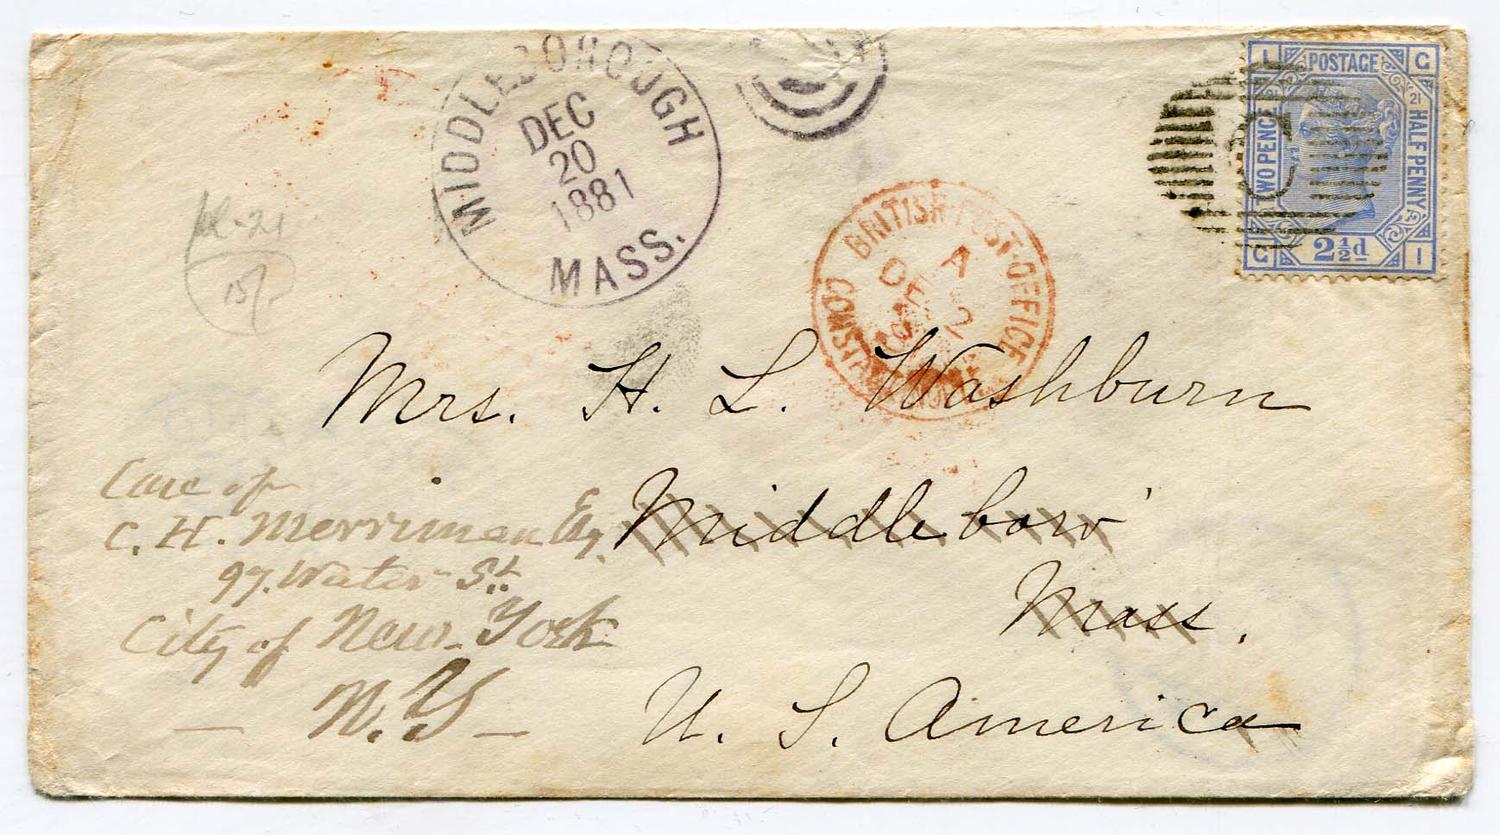 MIDDLEBOROUGH
DEC
20
1881
MASS.
BRITISH·POST·OFFICE
A
DE 2
I G
POSTAGE
21
TWO PENCE
HALF PENNY
C
2½d
G I
Mrs. H. L. Washburn
Middleboro'
Mass.
U. S. America
Care of
C. H. Merriman Esq.
97. Water St.
City of New York
— N.Y —
15/-